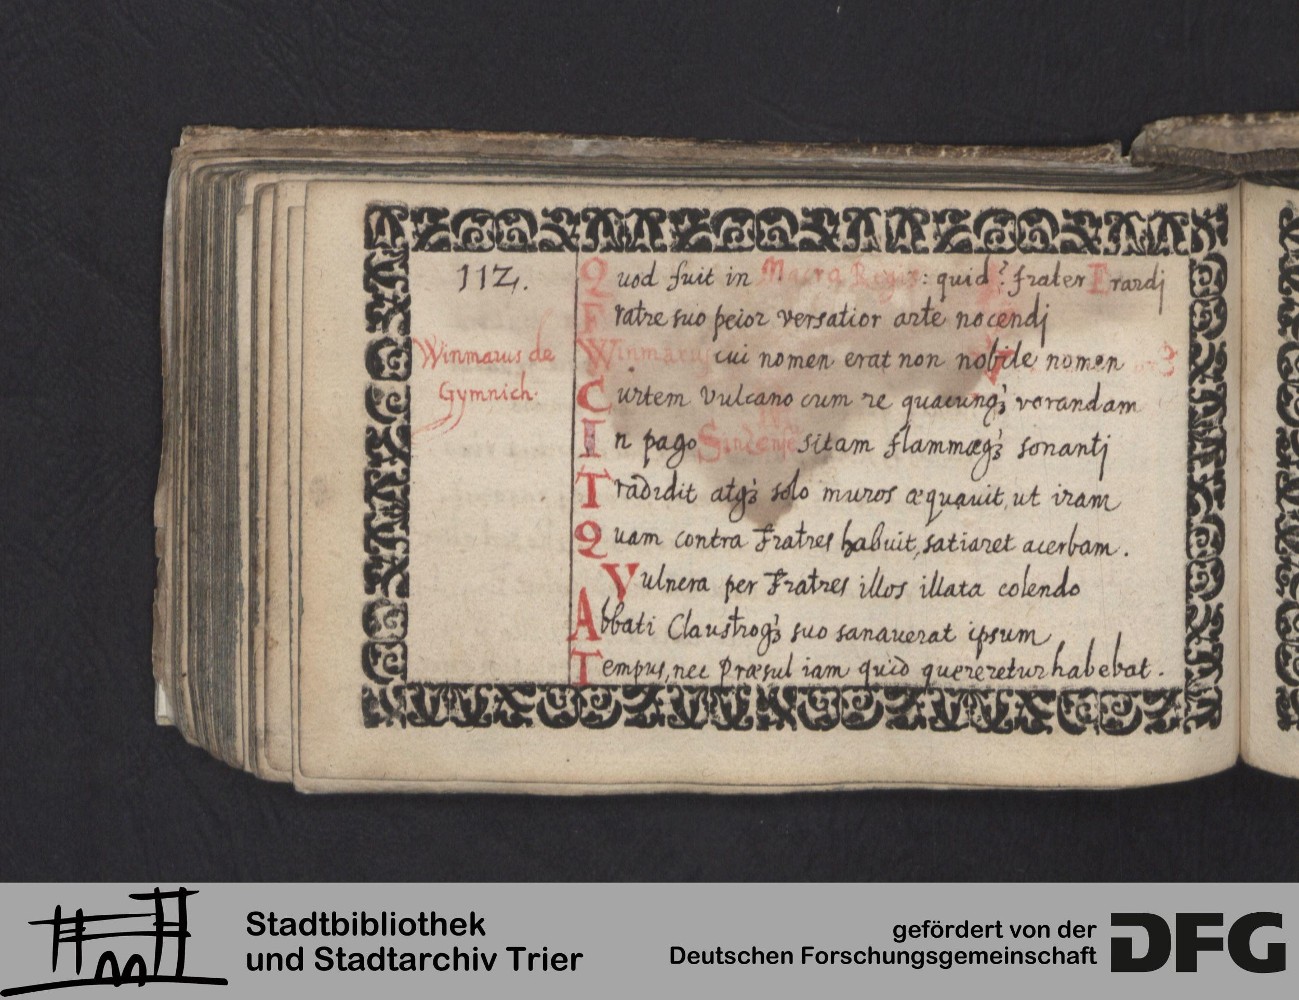 112.
Winmarus de
Gymnich.
Quod fuit in Macra Regis: quid? frater Erardj
Fratre suo peior versatior arte nocendj
Winmarus cui nomen erat non nobile nomen
Curtem Vulcano cum re quacunqꝫ vorandam
In pago sitam flammæqꝫ sonantj
Tradidit atqꝫ solo muros æquauit, ut iram
Quam contra Fratres habuit, satiaret acerbam.
Vulnera per Fratres illos illata colendo
Abbati Claustroqꝫ suo sanauerat ipsum
Tempus, nec Præsul iam quid quereretur habebat.
Stadtbibliothek
und Stadtarchiv Trier
gefördert von der
Deutschen Forschungsgemeinschaft
DFG